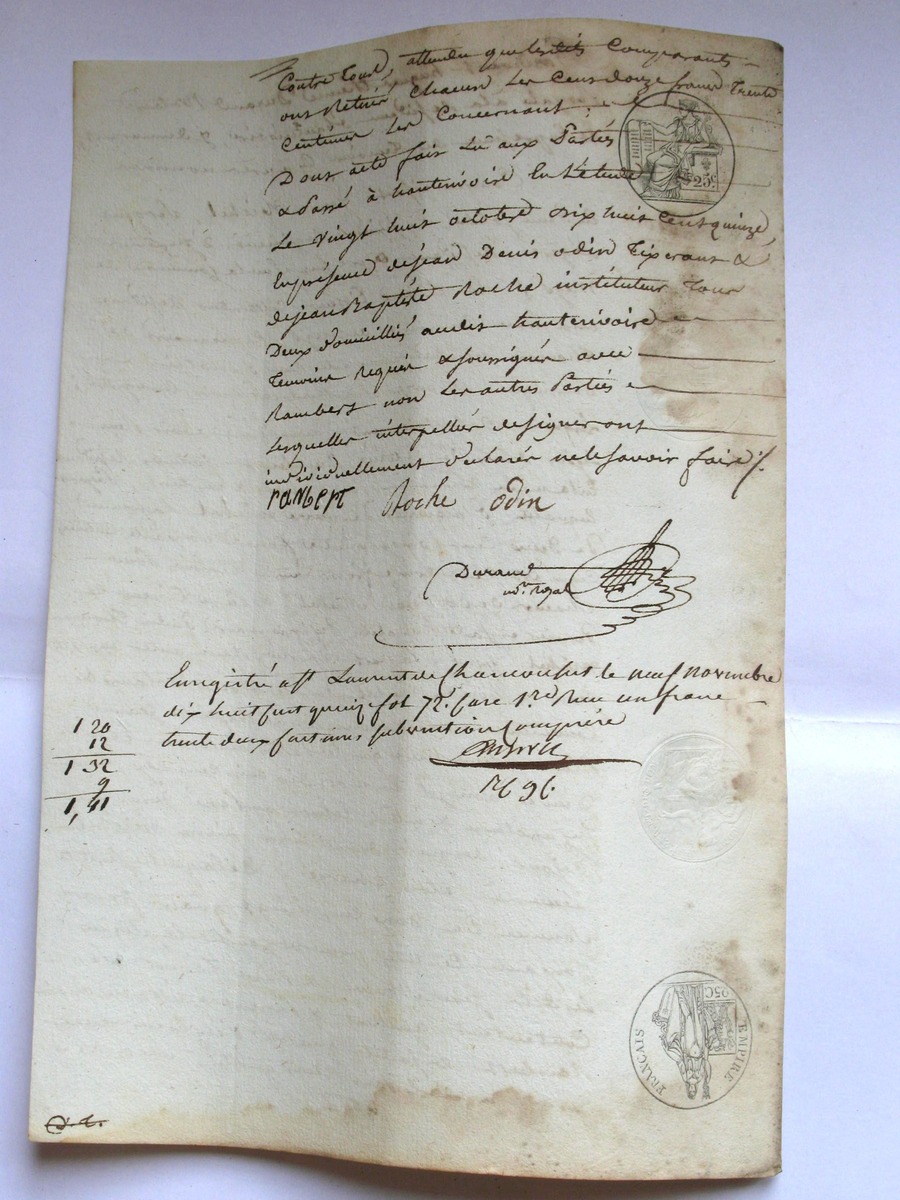 Contre tous, attendu que lesdits Comparants
ont Retiré chacun les Cent douze francs trente
Centimes les Concernant ;
Dont acte fait Lu aux Parties
& Passé à hauterivoire En L'étude
Le vingt huit octobre dix huit Cent quinze,
En présence de jean Denis odin Tixerant &
de jean Baptiste Roche instituteur Tous
Deux domiciliés audit hauterivoire
Temoins Requis & soussignés avec
Rambert non Les autres Parties
Lesquelles interpellées de signer ont
individuellement déclarés ne le savoir faire /.
rambert Roche odin
Durand
no.re royal
25c
Enregistré a St Laurent de Chamousset le neuf novembre
dix huit cent quinze fol 72 . case 1re Recu un franc
trente deux centimes, subvention Comprise
1 20
12
1 32
9
1,41
25C
EMPIRE
FRANCAIS